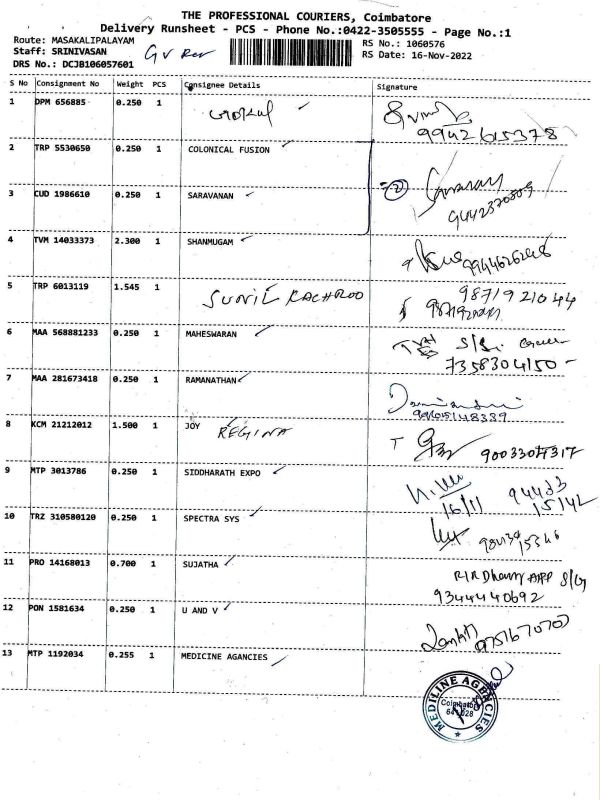 THE PROFESSIONAL COURIERS, Coimbatore
Delivery Runsheet - PCS - Phone No.:0422-3505555 - Page No.:1
Route: MASAKALIPALAYAM RS No.: 1060576
Staff: SRINIVASAN RS Date: 16-Nov-2022
DRS No.: DCJB106057601
S No Consignment No Weight PCS Consignee Details Signature
1 DPM 656885 0.250 1
9942615378
2 TRP 5530650 0.250 1 COLONICAL FUSION
3 CUD 1986610 0.250 1 SARAVANAN
4 TVM 14033373 2.300 1 SHANMUGAM
5 TRP 6013119 1.545 1 SUNIL KACHROO 9871921044
6 MAA 568881233 0.250 1 MAHESWARAN
7358304150
7 MAA 281673418 0.250 1 RAMANATHAN
8 KCM 21212012 1.500 1 JOY REGINA
9 MTP 3013786 0.250 1 SIDDHARATH EXPO
16/11
10 TRZ 310580120 0.250 1 SPECTRA SYS
11 PRO 14168013 0.700 1 SUJATHA
9344440692
12 PON 1581634 0.250 1 U AND V
13 MTP 1192034 0.255 1 MEDICINE AGANCIES
MEDILINE AGENCIES
Coimbatore